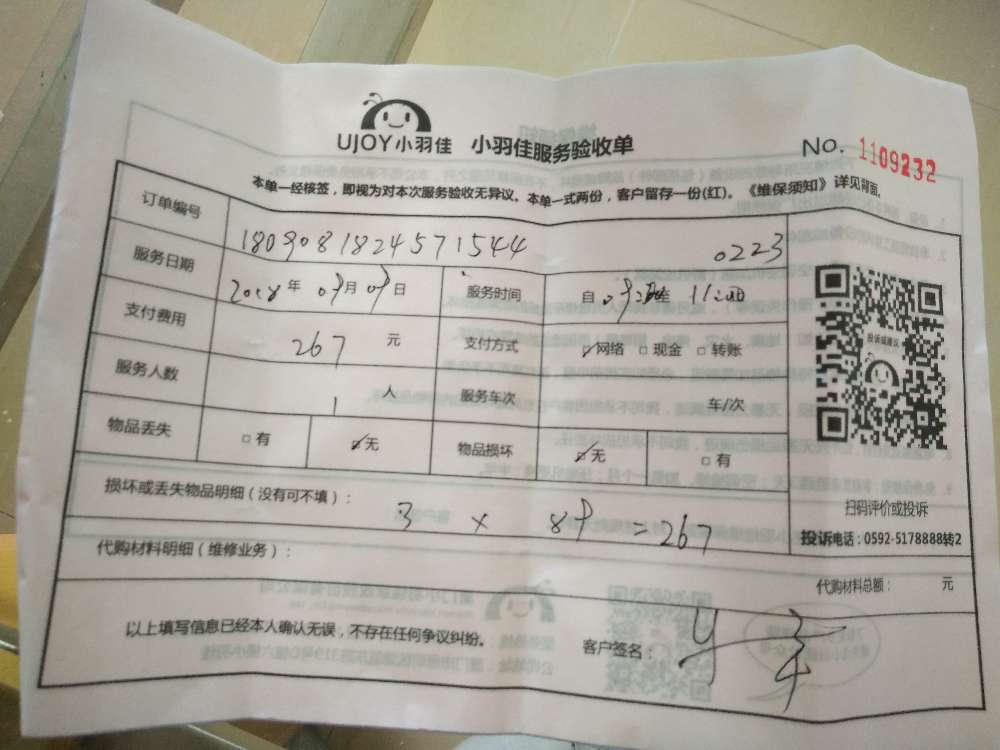 UJOY小羽佳 小羽佳服务验收单 No. 1109232
本单一经核签，即视为对本次服务验收无异议。本单一式两份，客户留存一份(红)。《维保须知》详见背面。
订单编号 1809081824571544 0223
服务日期 2018年09月09日 服务时间 自 至 11:00
支付费用 267 元 支付方式 网络 现金 转账
服务人数 1 人 服务车次 车/次
物品丢失 有 无 物品损坏 无 有
投诉或建议
损坏或丢失物品明细（没有可不填）： 3 × 89 = 267
扫码评价或投诉
投诉电话：0592-5178888转2
代购材料明细（维修业务）：
代购材料总额： 元
以上填写信息已经本人确认无误，不存在任何争议纠纷。 客户签名：